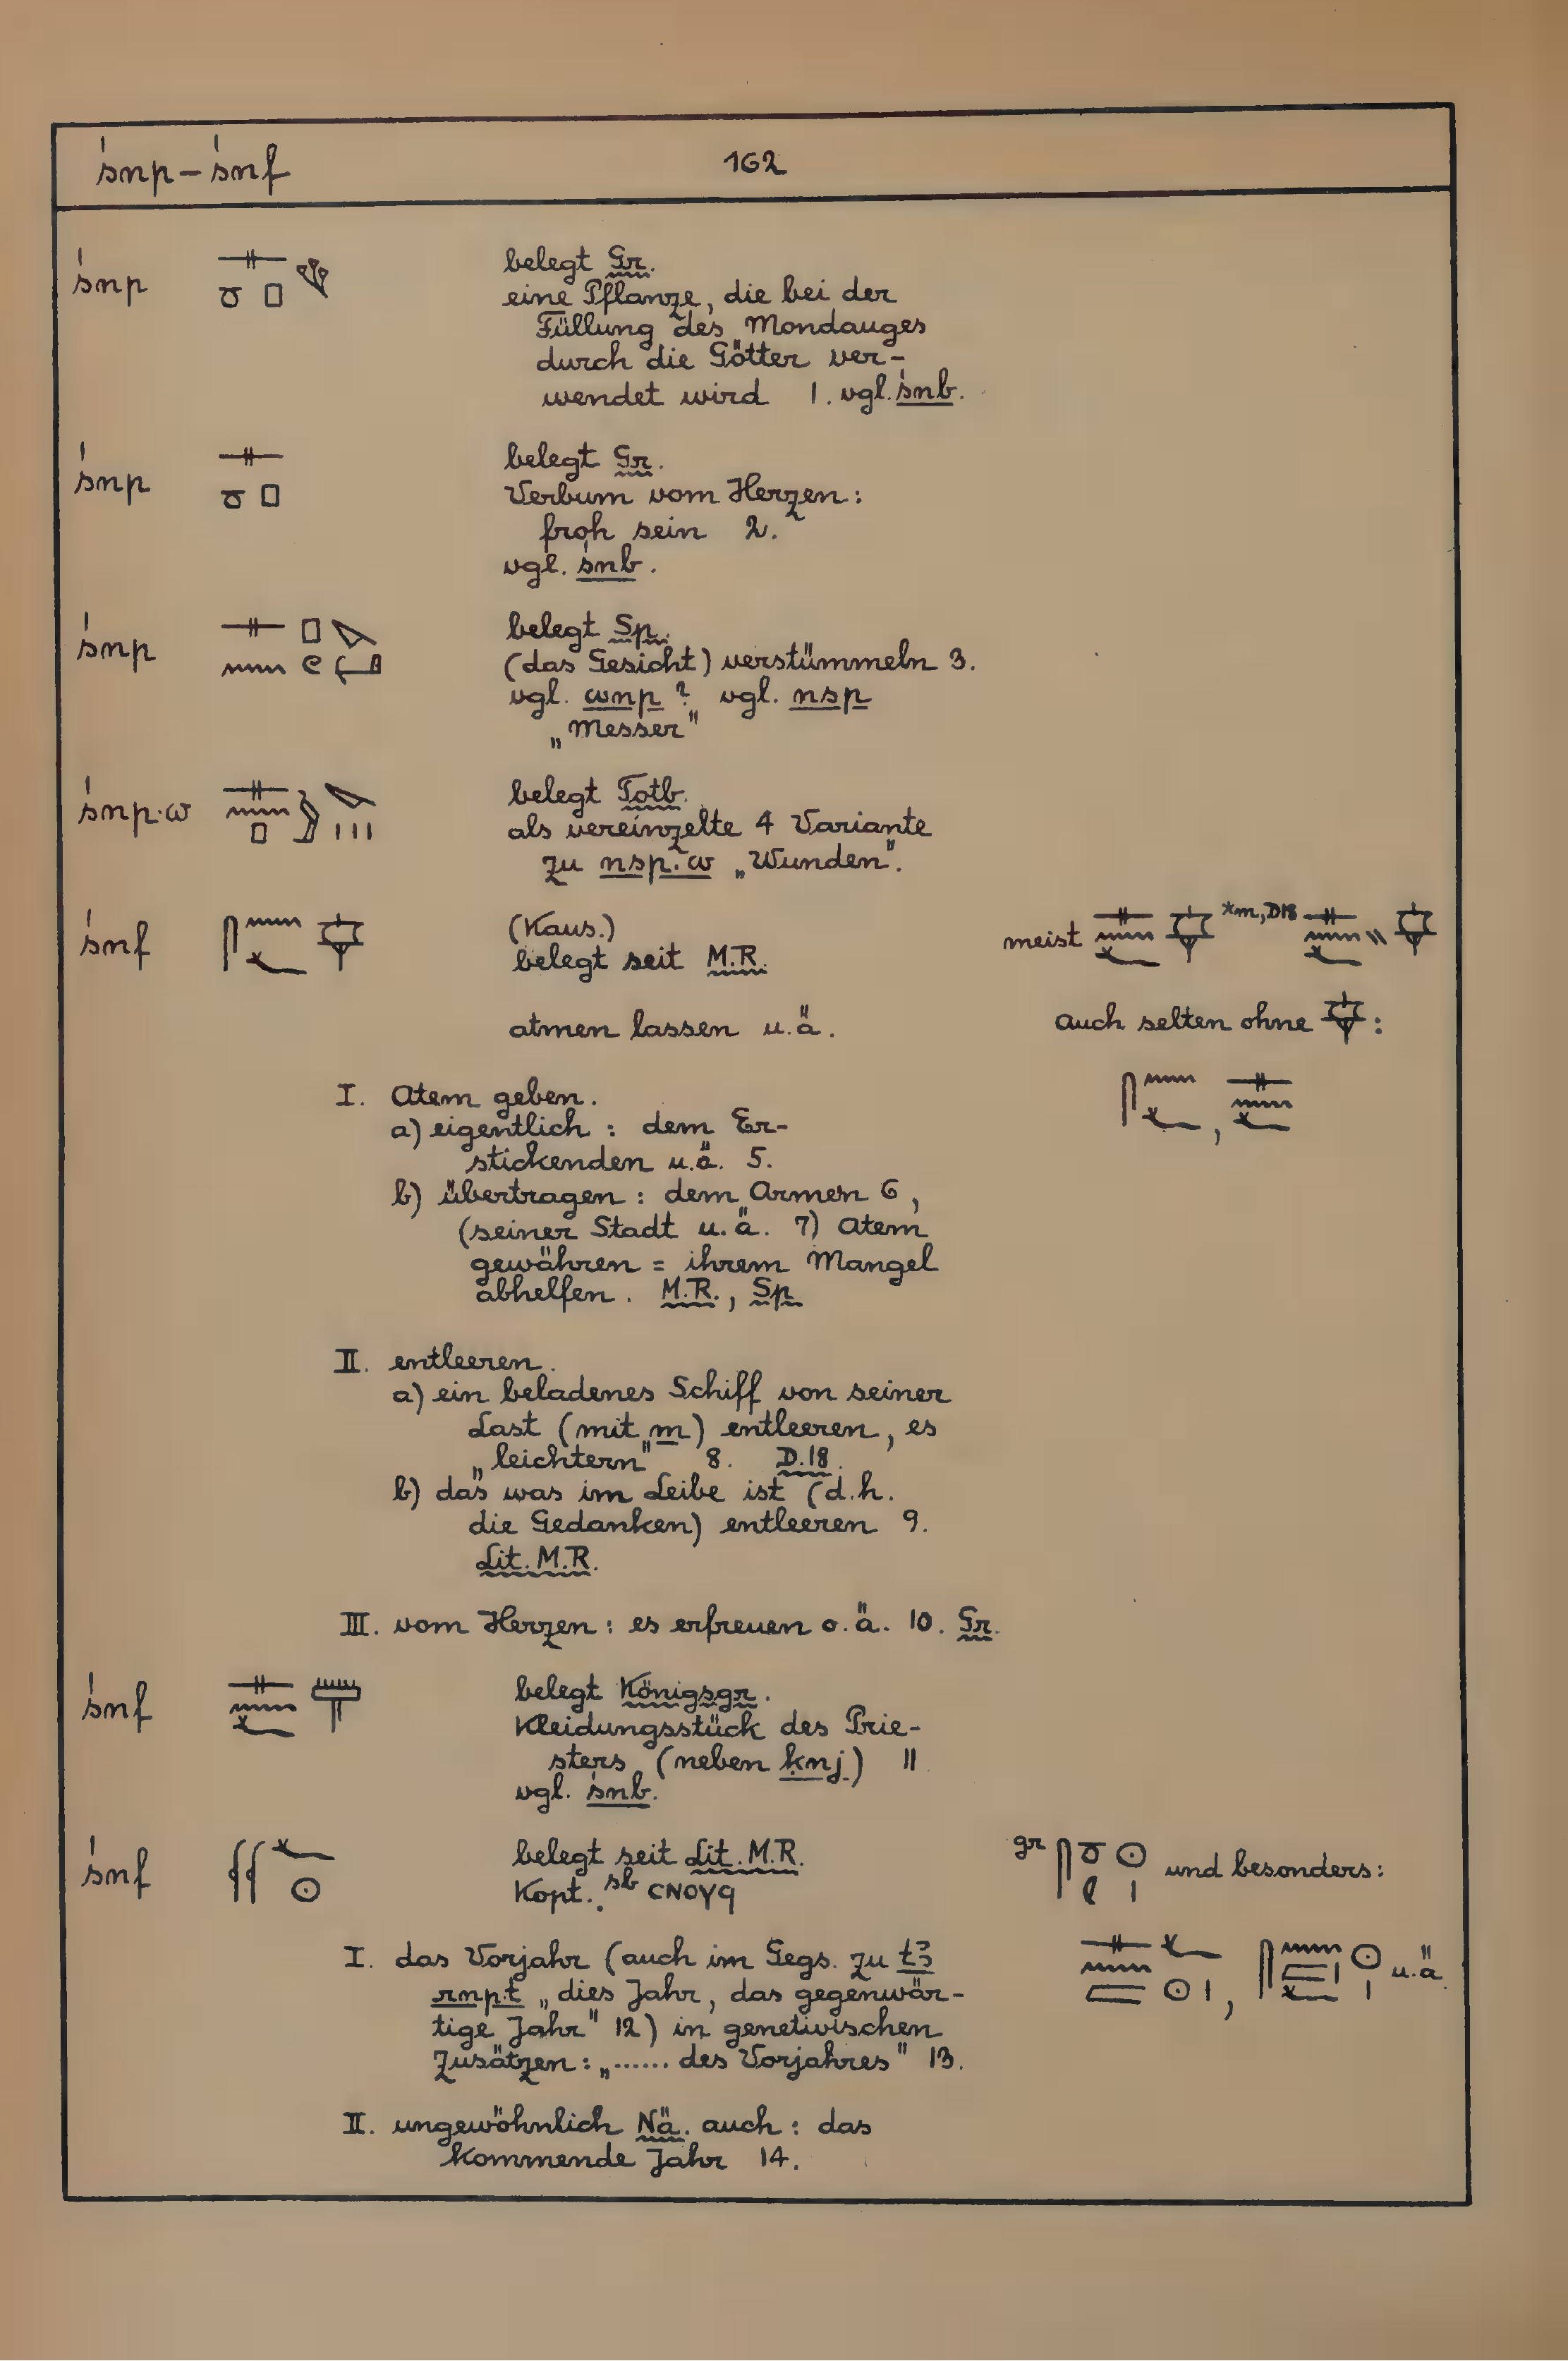 śnp – śnf 162
śnp belegt Gr.
eine Pflanze, die bei der
Füllung des Mondauges
durch die Götter ver-
wendet wird 1. vgl. śnb.
śnp belegt Gr.
Verbum vom Herzen:
froh sein 2.
vgl. śnb.
śnp belegt Sp.
(das Gesicht) verstümmeln 3.
vgl. wnp? vgl. nsp
„Messer"
śnp.w belegt Totb.
als vereinzelte 4 Variante
zu nsp.w „Wunden".
śnf (Kaus.)
belegt seit M.R.
meist *m, D18
atmen lassen u.ä.
auch selten ohne :
I. Atem geben.
a) eigentlich: dem Er-
stickenden u.ä. 5.
b) übertragen: dem Armen 6,
(seiner Stadt u.ä. 7) Atem
gewähren = ihrem Mangel
abhelfen. M.R., Sp.
II. entleeren.
a) ein beladenes Schiff von seiner
Last (mit m) entleeren, es
„leichtern" 8. D.18.
b) das was im Leibe ist (d.h.
die Gedanken) entleeren 9.
Lit. M.R.
III. vom Herzen: es erfreuen o.ä. 10. Gr.
śnf belegt Königsgr.
Kleidungsstück des Prie-
sters (neben ḳnj) 11
vgl. śnb.
śnf belegt seit Lit. M.R.
Kopt. sb ⲥⲛⲟⲩϥ
gr und besonders:
I. das Vorjahr (auch im Gegs. zu tꜣ
rnp.t „dies Jahr, das gegenwär-
tige Jahr" 12) in genetivischen
Zusätzen: „...... des Vorjahres" 13.
u.ä.
II. ungewöhnlich Nä. auch: das
kommende Jahr 14.